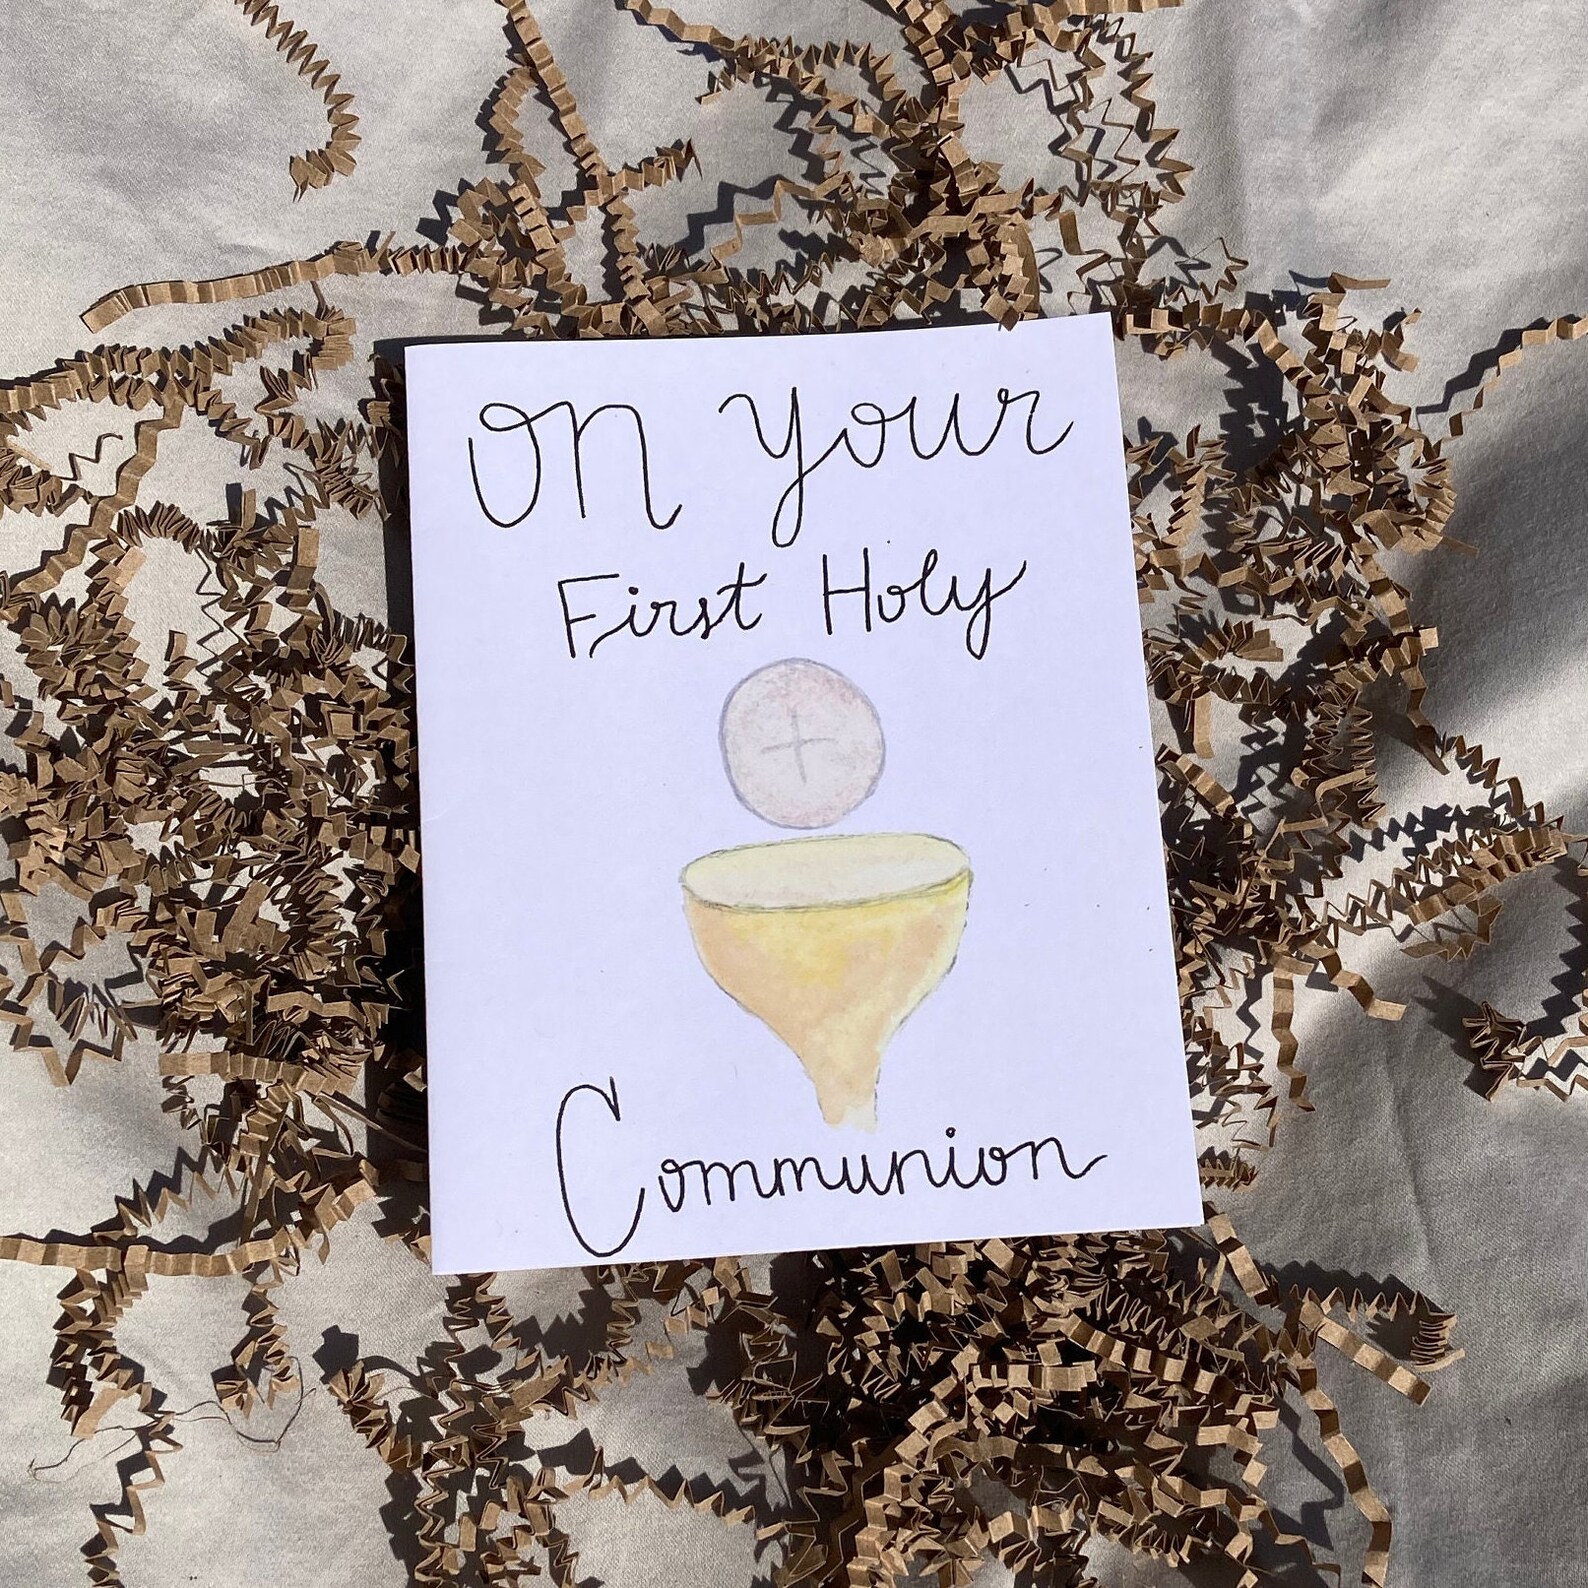 On your
First Holy
Communion